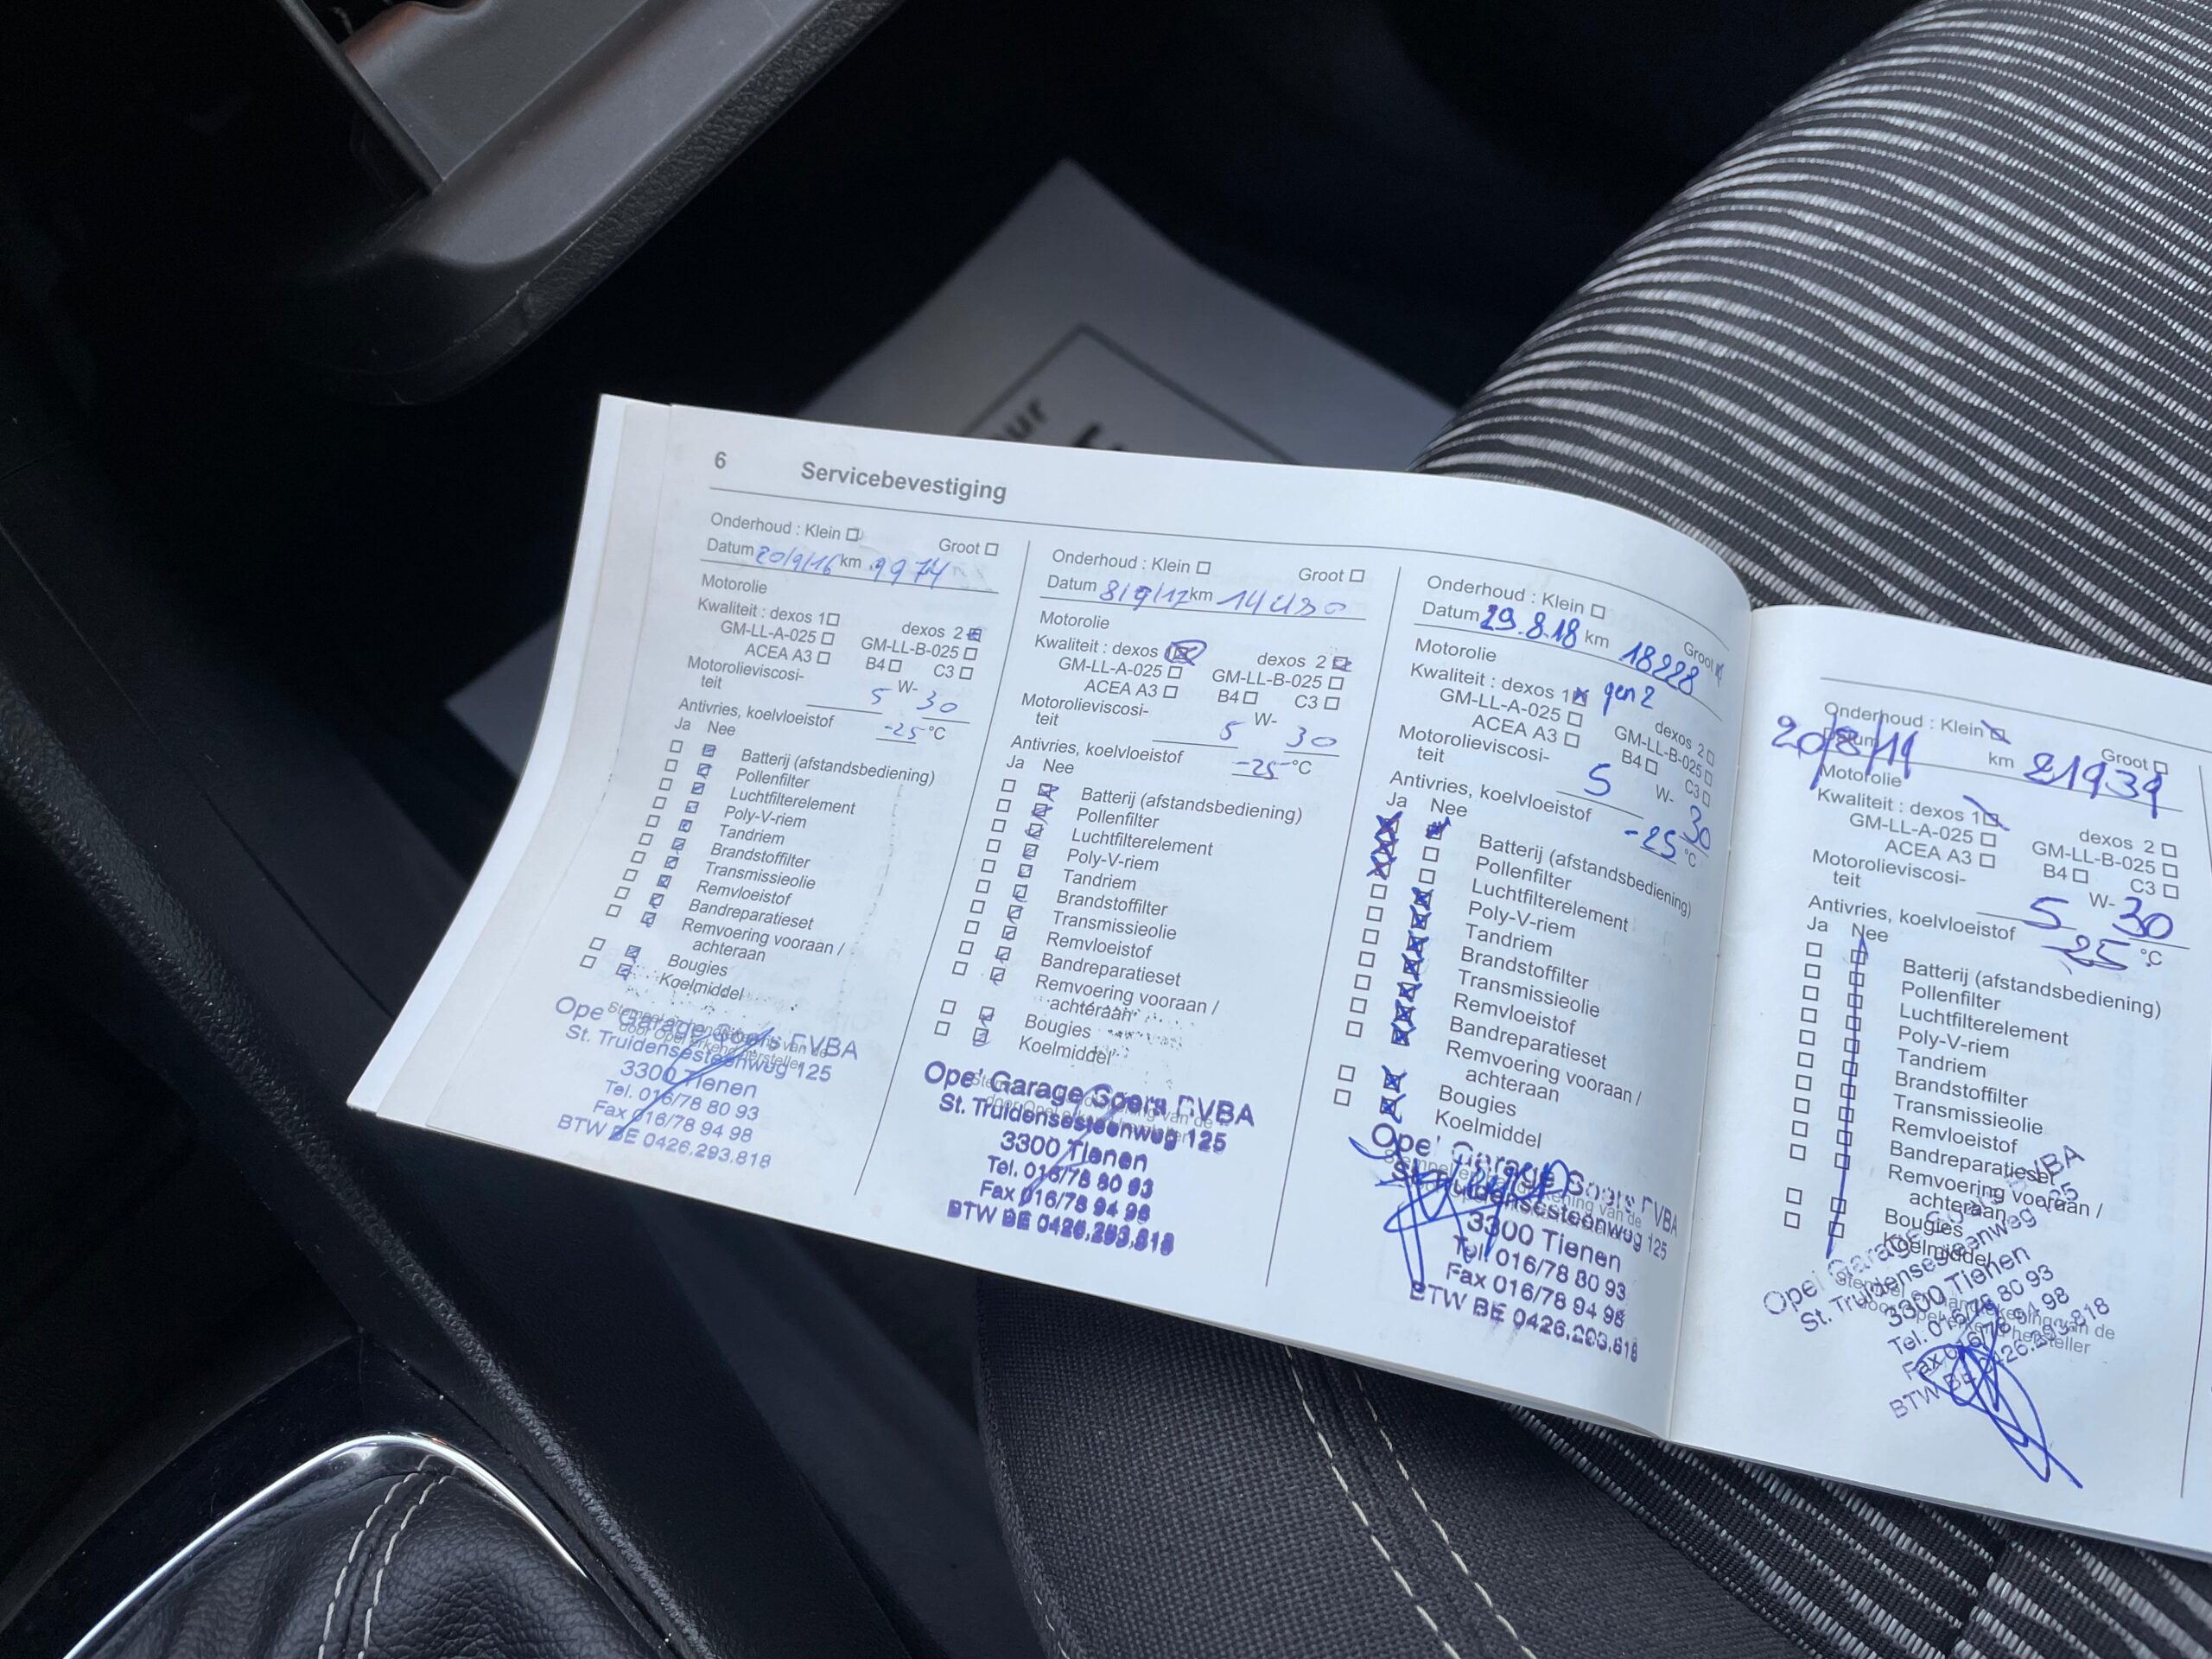 6 Servicebevestiging
Onderhoud : Klein Groot
Datum 20/9/16 km 9974
Motorolie
Kwaliteit : dexos 1 dexos 2
GM-LL-A-025 GM-LL-B-025
ACEA A3 B4 C3
Motorolieviscosi-
teit 5 W- 30
Antivries, koelvloeistof -25 °C
Ja Nee
Batterij (afstandsbediening)
Pollenfilter
Luchtfilterelement
Poly-V-riem
Tandriem
Brandstoffilter
Transmissieolie
Remvloeistof
Bandreparatieset
Remvoering vooraan /
achteraan
Bougies
Koelmiddel
Opel Garage Soers BVBA
St. Truidensesteenweg 125
3300 Tienen
Tel. 016/78 80 93
Fax 016/78 94 98
BTW BE 0426.293.818
Onderhoud : Klein Groot
Datum 8/9/17 km 14430
Motorolie
Kwaliteit : dexos 1 dexos 2
GM-LL-A-025 GM-LL-B-025
ACEA A3 B4 C3
Motorolieviscosi-
teit 5 W- 30
Antivries, koelvloeistof -25 °C
Ja Nee
Batterij (afstandsbediening)
Pollenfilter
Luchtfilterelement
Poly-V-riem
Tandriem
Brandstoffilter
Transmissieolie
Remvloeistof
Bandreparatieset
Remvoering vooraan /
achteraan
Bougies
Koelmiddel
Opel Garage Soers BVBA
St. Truidensesteenweg 125
3300 Tienen
Tel. 016/78 80 93
Fax 016/78 94 98
BTW BE 0426.293.818
Onderhoud : Klein Groot
Datum 29.8.18 km 18228
Motorolie
Kwaliteit : dexos 1 gen 2 dexos 2
GM-LL-A-025 GM-LL-B-025
ACEA A3 B4 C3
Motorolieviscosi-
teit 5 W- 30
Antivries, koelvloeistof -25 °C
Ja Nee
Batterij (afstandsbediening)
Pollenfilter
Luchtfilterelement
Poly-V-riem
Tandriem
Brandstoffilter
Transmissieolie
Remvloeistof
Bandreparatieset
Remvoering vooraan /
achteraan
Bougies
Koelmiddel
Opel Garage Soers BVBA
St. Truidensesteenweg 125
3300 Tienen
Tel. 016/78 80 93
Fax 016/78 94 98
BTW BE 0426.293.818
Onderhoud : Klein Groot
Datum 20/8/19 km 21939
Motorolie
Kwaliteit : dexos 1 dexos 2
GM-LL-A-025 GM-LL-B-025
ACEA A3 B4 C3
Motorolieviscosi-
teit 5 W- 30
Antivries, koelvloeistof -25 °C
Ja Nee
Batterij (afstandsbediening)
Pollenfilter
Luchtfilterelement
Poly-V-riem
Tandriem
Brandstoffilter
Transmissieolie
Remvloeistof
Bandreparatieset
Remvoering vooraan /
achteraan
Bougies
Koelmiddel
Opel Garage Soers BVBA
St. Truidensesteenweg 125
3300 Tienen
Tel. 016/78 80 93
Fax 016/78 94 98
BTW BE 0426.293.818